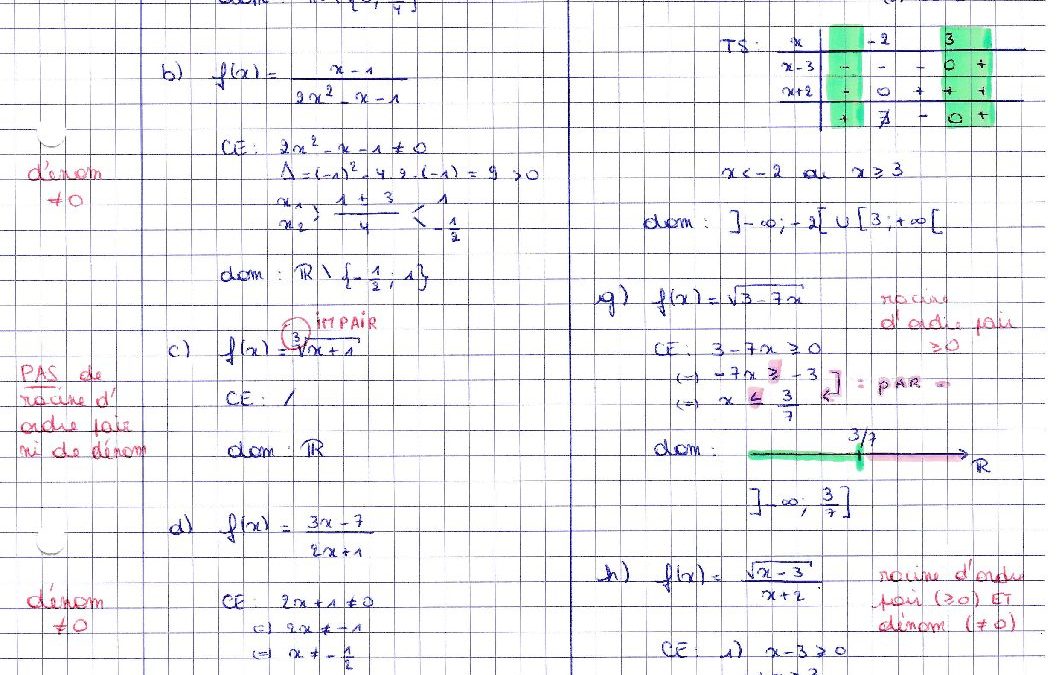 b) f(x) = x-1 / 2x² - x - 1
CE : 2x² - x - 1 ≠ 0
Δ = (-1)² - 4.2.(-1) = 9 > 0
x₁ x₂ > 1 ± 3 / 4 < 1 ; -1/2
dénom
≠0
dom : ℝ \ {-1/2 ; 1}
c) f(x) = ³√x+1
IMPAIR
PAS de
racine d'
ordre pair
ni de dénom
CE : /
dom : ℝ
d) f(x) = 3x-7 / 2x+1
dénom
≠0
CE : 2x+1 ≠ 0
(=) 2x ≠ -1
(=) x ≠ -1/2
TS : x | -2 3
x-3 | - - - 0 +
x+2 | - 0 + + +
+ ∄ - 0 +
x < -2 ou x ≥ 3
dom : ]-∞ ; -2[ ∪ [3 ; +∞[
g) f(x) = √3-7x
racine
d'ordre pair
≥0
CE : 3-7x ≥ 0
(=) -7x ≥ -3
(=) x ≤ 3/7
: PAR -
dom :
3/7
ℝ
]-∞ ; 3/7]
h) f(x) = √x-3 / x+2
racine d'ordre
pair (≥0) ET
dénom (≠0)
CE : 1) x-3 ≥ 0